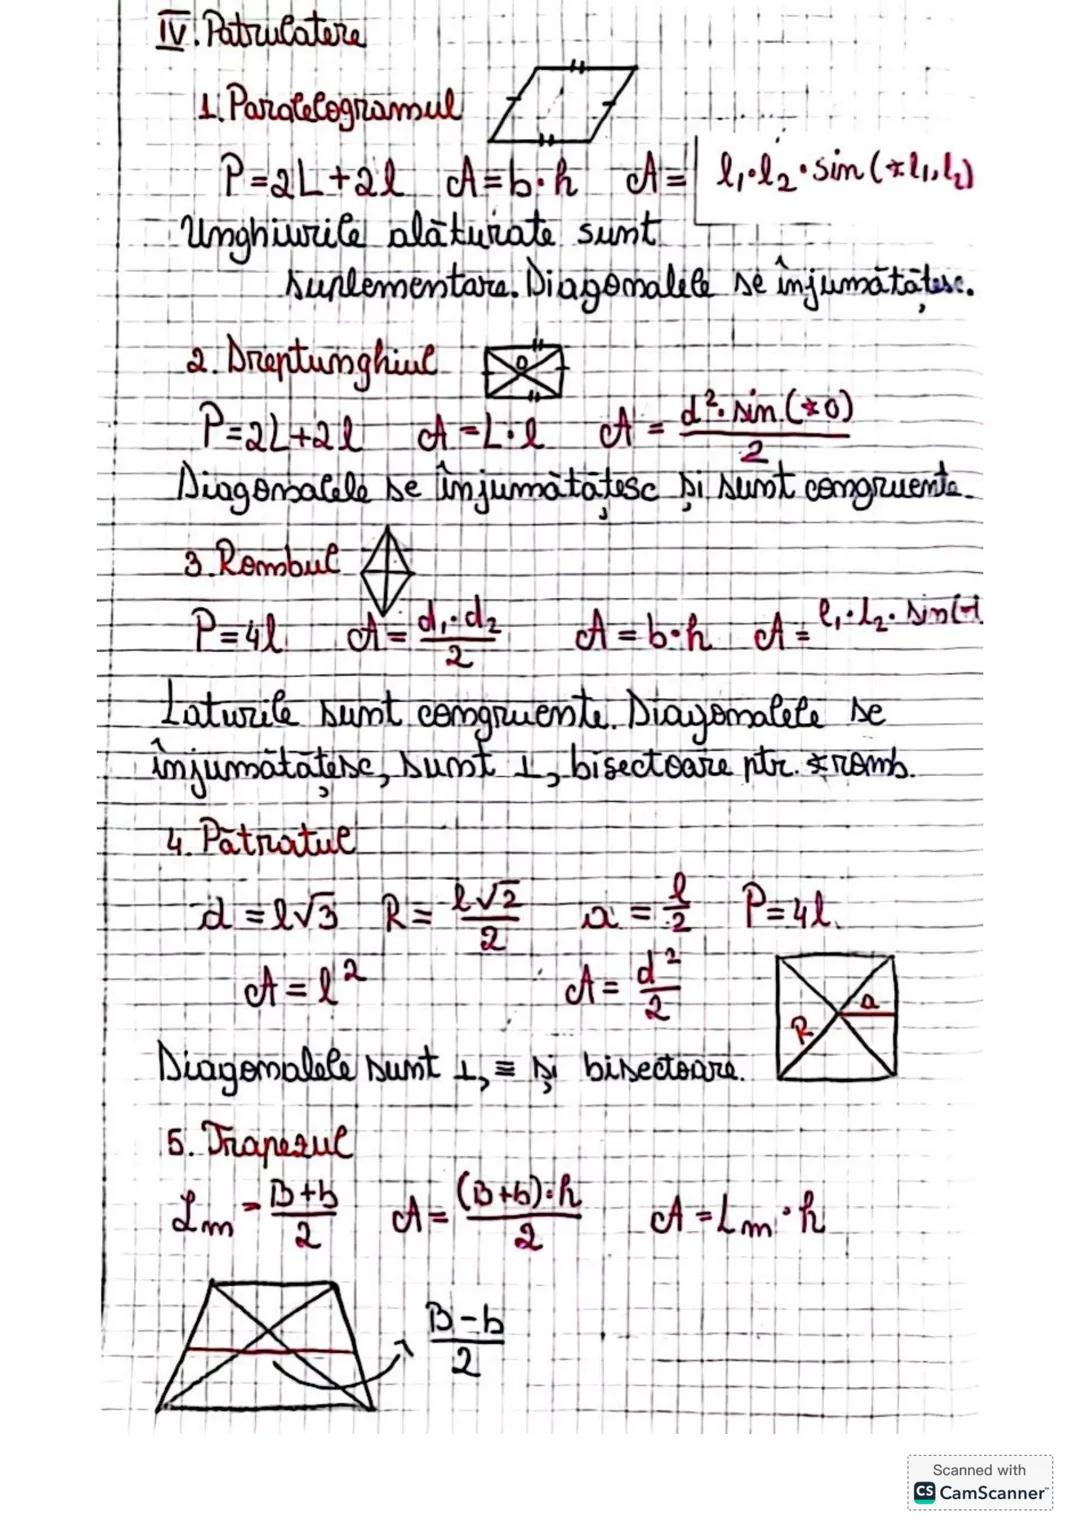 IV. Patrulatere
1. Paralelogramul
P=2L+2l A=b·h A= l₁·l₂·sin(∢l₁,l₂)
Unghiurile alăturate sunt
suplementare. Diagonalele se înjumătățesc.
2. Dreptunghiul
O
P=2L+2l A=L·l A= d²·sin(∢O)/2
Diagonalele se înjumătățesc și sunt congruente.
3. Rombul
P=4l A= d₁·d₂/2 A=b·h A= l₁·l₂·sin(∢
Laturile sunt congruente. Diagonalele se
înjumătățesc, sunt ⊥, bisectoare ptr. ∢romb.
4. Pătratul
d=l√3 R= l√2/2 a= l/2 P=4l
A=l² A= d²/2
a
R
Diagonalele sunt ⊥, ≡ și bisectoare.
5. Trapezul
Lm = B+b/2 A= (B+b)·h/2 A=Lm·h
B-b/2
Scanned with
CS CamScanner